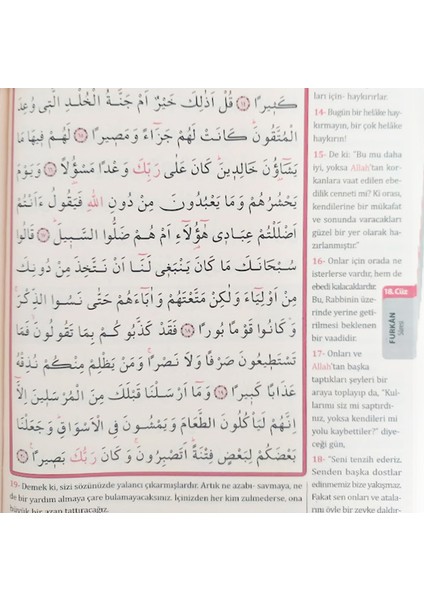 كَثِيرًا ﴿١٤﴾ قُلْ اَذٰلِكَ خَيْرٌ اَمْ جَنَّةُ الْخُلْدِ الَّتِى وُعِدَ
الْمُتَّقُونَ كَانَتْ لَهُمْ جَزَآءً وَمَصِيرًا ﴿١٥﴾ لَهُمْ فِيهَا مَا
يَشَآؤُنَ خَالِدِينَ كَانَ عَلٰى رَبِّكَ وَعْدًا مَسْؤُلًا ﴿١٦﴾ وَيَوْمَ
يَحْشُرُهُمْ وَمَا يَعْبُدُونَ مِنْ دُونِ اللّٰهِ فَيَقُولُ ءَاَنْتُمْ
اَضْلَلْتُمْ عِبَادِى هٰٓؤُلَآءِ اَمْ هُمْ ضَلُّوا السَّبِيلَ ﴿١٧﴾ قَالُوا
سُبْحَانَكَ مَا كَانَ يَنْبَغِى لَنَٓا اَنْ نَتَّخِذَ مِنْ دُونِكَ
مِنْ اَوْلِيَٓاءَ وَلٰكِنْ مَتَّعْتَهُمْ وَاٰبَٓاءَهُمْ حَتّٰى نَسُوا الذِّكْرَ
وَكَانُوا قَوْمًا بُورًا ﴿١٨﴾ فَقَدْ كَذَّبُوكُمْ بِمَا تَقُولُونَ فَمَا
تَسْتَطِيعُونَ صَرْفًا وَلَا نَصْرًا وَمَنْ يَظْلِمْ مِنْكُمْ نُذِقْهُ
عَذَابًا كَبِيرًا ﴿١٩﴾ وَمَٓا اَرْسَلْنَا قَبْلَكَ مِنَ الْمُرْسَلِينَ اِلَّٓا
اِنَّهُمْ لَيَأْكُلُونَ الطَّعَامَ وَيَمْشُونَ فِى الْاَسْوَاقِ وَجَعَلْنَا
بَعْضَكُمْ لِبَعْضٍ فِتْنَةً اَتَصْبِرُونَ وَكَانَ رَبُّكَ بَصِيرًا ﴿٢٠﴾
ları için- haykırırlar.
14- Bugün bir helâke hay-
kırmayın, bir çok helâke
haykırın!
15- De ki: "Bu mu daha
iyi, yoksa Allah'tan kor-
kanlara vaat edilen ebe-
dilik cenneti mi? Ki orası,
kendilerine bir mükafat
ve sonunda varacakları
güzel bir yer olarak ha-
zırlanmıştır."
16- Onlar için orada ne
isterlerse vardır, hem de
ebedi kalacaklardır.
Bu, Rabbinin üze-
rinde yerine geti-
rilmesi beklenen
bir vaadidir.
17- Onları ve
Allah'tan başka
taptıkları şeyleri bir
araya toplayıp da, "Kul-
larımı siz mi saptırdı-
nız, yoksa kendileri mi
yolu kaybettiler?" diye-
ceği gün,
18- "Seni tenzih ederiz.
Senden başka dostlar
edinmemiz bize yakışmaz.
Fakat sen onları ve atala-
rını öyle bir zevke daldır-
18.Cüz
FURKÂN
Sûresi
19- Demek ki, sizi sözünüzde yalancı çıkarmışlardır. Artık ne azabı- savmaya, ne
de bir yardım almaya çare bulamayacaksınız. İçinizden her kim zulmederse, ona
büyük bir azap tattıracağız.